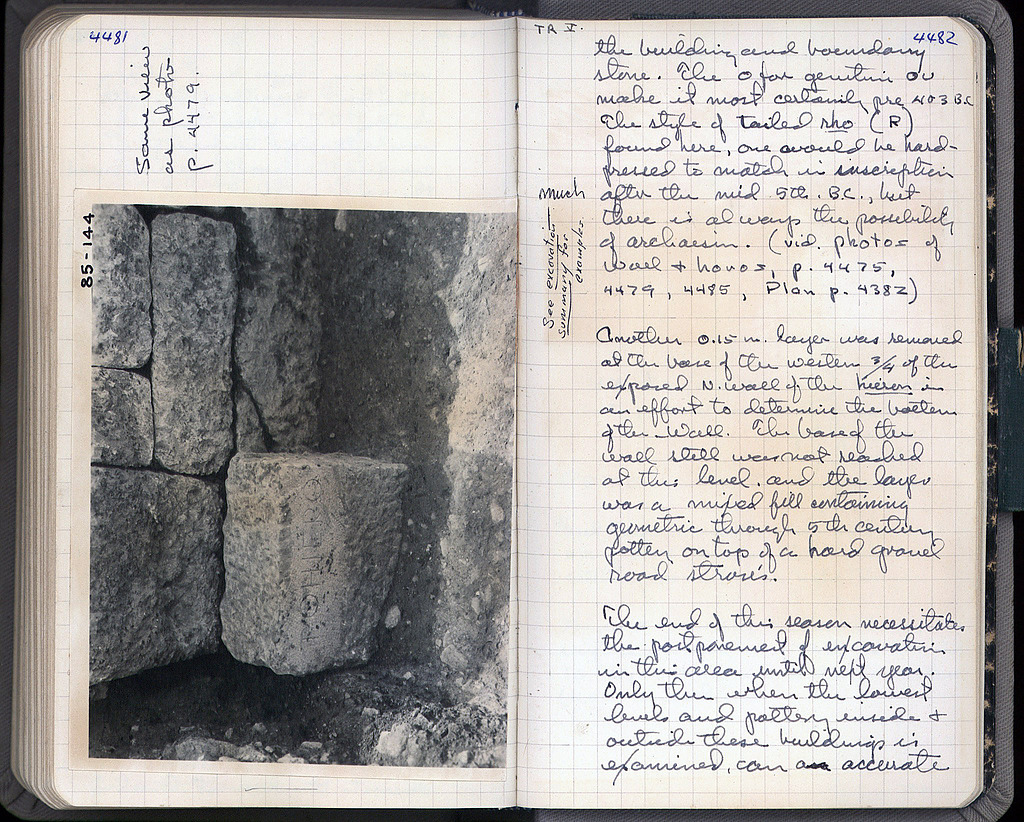 4481
Same view
as photo
p. 4479.
85-144
TR V.
4482
the building and boundary
stone. The o for genitive ου
make it most certainly pre 403 B.C
The style of tailed rho (R)
found here, one would be hard-
pressed to match in inscription
much
after the mid 5th. B.C., but
there is always the possibility
of archaism. (vid. photos of
wall + horos, p. 4475,
4479, 4485, Plan p. 4382)
See excavation
summary for
examples.
Another 0.15 m. layer was removed
at the base of the western 3/4 of the
exposed N. wall of the hieron in
an effort to determine the bottom
of the wall. The base of the
wall still was not reached
at this level, and the layer
was a mixed fill containing
geometric through 5th century
pottery on top of a hard gravel
road strosis.
The end of this season necessitates
the postponement of excavation
in this area until next year.
Only then when the lowest
levels and pottery inside +
outside these buildings is
examined, can accurate